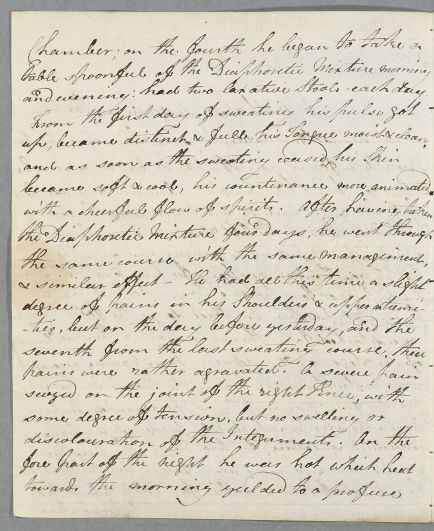 Chamber; on the fourth he began to take a
table spoonful of the Diaphoretic Mixture morning
and evening: had two laxative stools each day
From the first day of sweating his pulse got
up, became distinct & full, his Tongue moist & clean,
and as soon as the sweating ceased, his Skin
became soft & cool, his countenance more animated
with a cheerful flow of spirits. After having taken
the Diaphoretic Mixture four days, he went through
the same course with the same management,
& similar effect - He had all this time a slight
degree of pains in his Shoulders & upper extremi-
-ties, but on the day before yesterday, and the
seventh from the last sweating course, their
pains were rather agravated. A severe pain
seized on the joint of the right Knee, with
some degree of tension, but no swelling or
discolouration of the Integuments. On the
fore part of the night he was hot which heat
towards the morning yeilded to a profuse